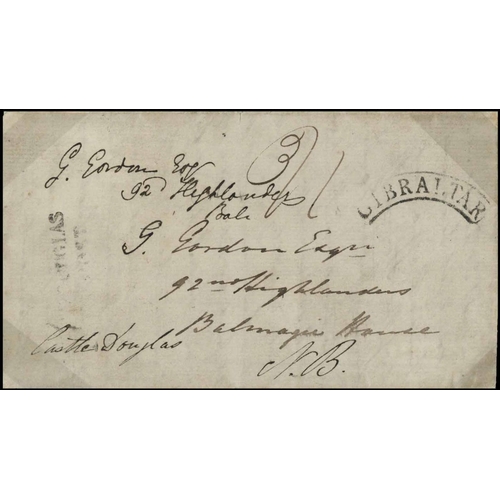 G. Gordon Esq
92d Highlanders
Bal
3/1
GIBRALTAR
G. Gordon Esqr
92nd Highlanders
Balmagie House
Castle Douglas
N.B.